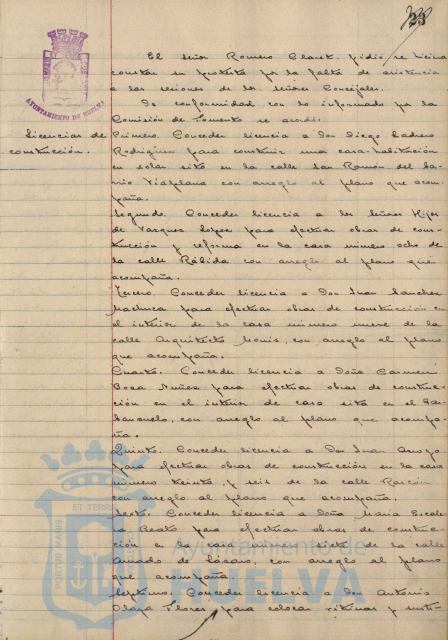 23
El señor Romero Claret, pidió se hiciera
constar su protesta por la falta de asistencia
a las sesiones de los señores Concejales.
De conformidad con lo informado por la
Comisión de Fomento se acordó.
Licencias de
construcción.
Primero. Conceder licencia a Don Diego
Rodríguez para construir una casa-habitación
en solar sito en la calle San Ramón del Ba-
rrio Viaplana con arreglo al plano que acom-
paña.
Segundo. Conceder licencia a los señores Hijos
de Vazquez Lopez para efectuar obras de cons-
trucción y reforma en la casa número ocho de
la calle Rábida con arreglo al plano que
acompaña.
Tercero. Conceder licencia a Don Juan Sanchez
Machuca para efectuar obras de construcción en
el interior de la casa número nueve de la
calle Arquitecto Monís, con arreglo al plano
que acompaña.
Cuarto. Conceder licencia a Doña Carmen
Boza Nuñez para efectuar obras de construc-
ción en el interior de casa sita en el
con arreglo al plano que acompa-
ña.
Quinto. Conceder licencia a Don Juan
para efectuar obras de construcción en la casa
número treinta y seis de la calle Rascón
con arreglo al plano que acompaña.
Sexto. Conceder licencia a Doña María Escale-
ra Beato para efectuar obras de construc-
ción en la casa número siete de la calle
Amado de Lázaro, con arreglo al plano
que acompaña.
Septimo. Conceder licencia a Don Antonio
Olaya Flores para colocar vitrinas y
AYUNTAMIENTO DE HUELVA
PORTUS MARIS ET TERRAE
Ayuntamiento de
HUELVA